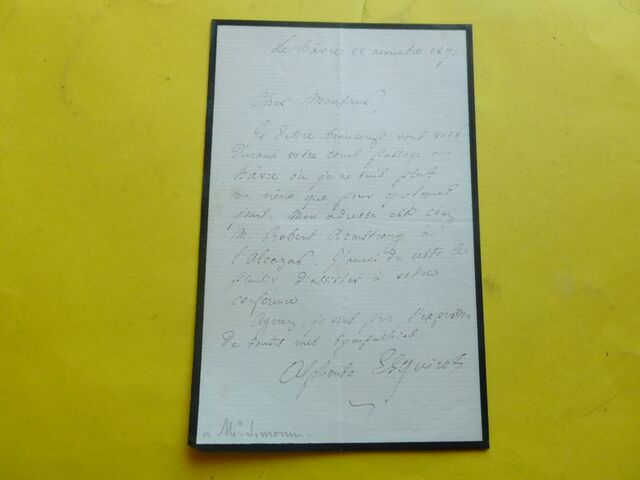 Le Hâvre 22 novembre 187
Cher Monsieur,
Je désire beaucoup vous voir
durant votre court passage au
Hâvre où je ne suis plus
moi même que pour quelques
jours. Mon adresse est chez
M. Robert Armstrong à
l'Alcazar. J'aurai du reste le
plaisir d'assister à votre
conférence.
Agréez, je vous prie, l'expression
de toutes mes sympathies
Alphonse Esquiros
à Mr Simonin.